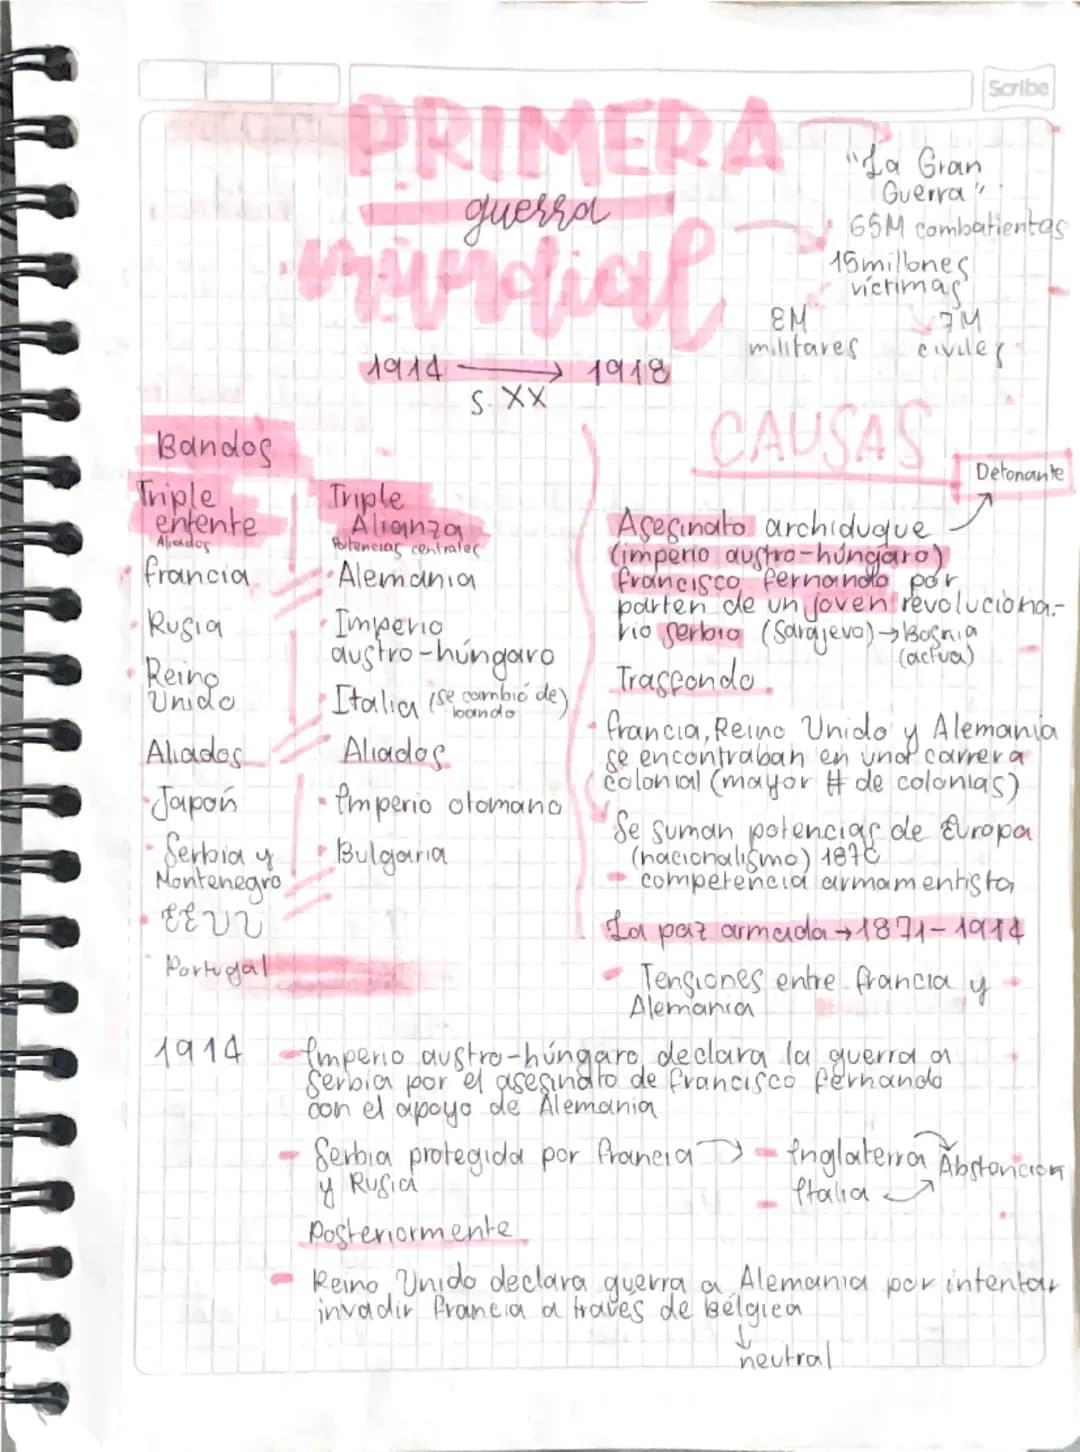 Scribe
PRIMERA
guerra
mundial
1914 → 1918
S. XX
"La Gran
Guerra"
65M combatientes
15 millones
víctimas
8M
militares
7M
civiles
Bandos
Triple
entente
Aliados
Francia
Rusia
Reino
Unido
Aliados
Japón
Serbia y
Montenegro
EEUU
Portugal
Triple
Alianza
Potencias centrales
Alemania
Imperio
austro-húngaro
Italia (se cambió de
bando)
Aliados
Imperio otomano
Bulgaria
CAUSAS
Detonante
Asesinato archiduque
(imperio austro-húngaro)
Francisco Fernando por
parten de un joven revoluciona-
rio serbio (Sarajevo) → Bosnia
(actua)
Trasfondo
Francia, Reino Unido y Alemania
se encontraban en una carrera
colonial (mayor # de colonias)
Se suman potencias de Europa
(nacionalismo) 1870
- competencia armamentista
La paz armada → 1871-1914
- Tensiones entre Francia y
Alemania
1914
- Imperio austro-húngaro declara la guerra a
Serbia por el asesinato de Francisco Fernando
con el apoyo de Alemania
- Serbia protegida por Francia
y Rusia
- Inglaterra
- Italia
Abstención
Posteriormente
- Reino Unido declara guerra a Alemania por intentar
invadir Francia a través de Bélgica
neutral